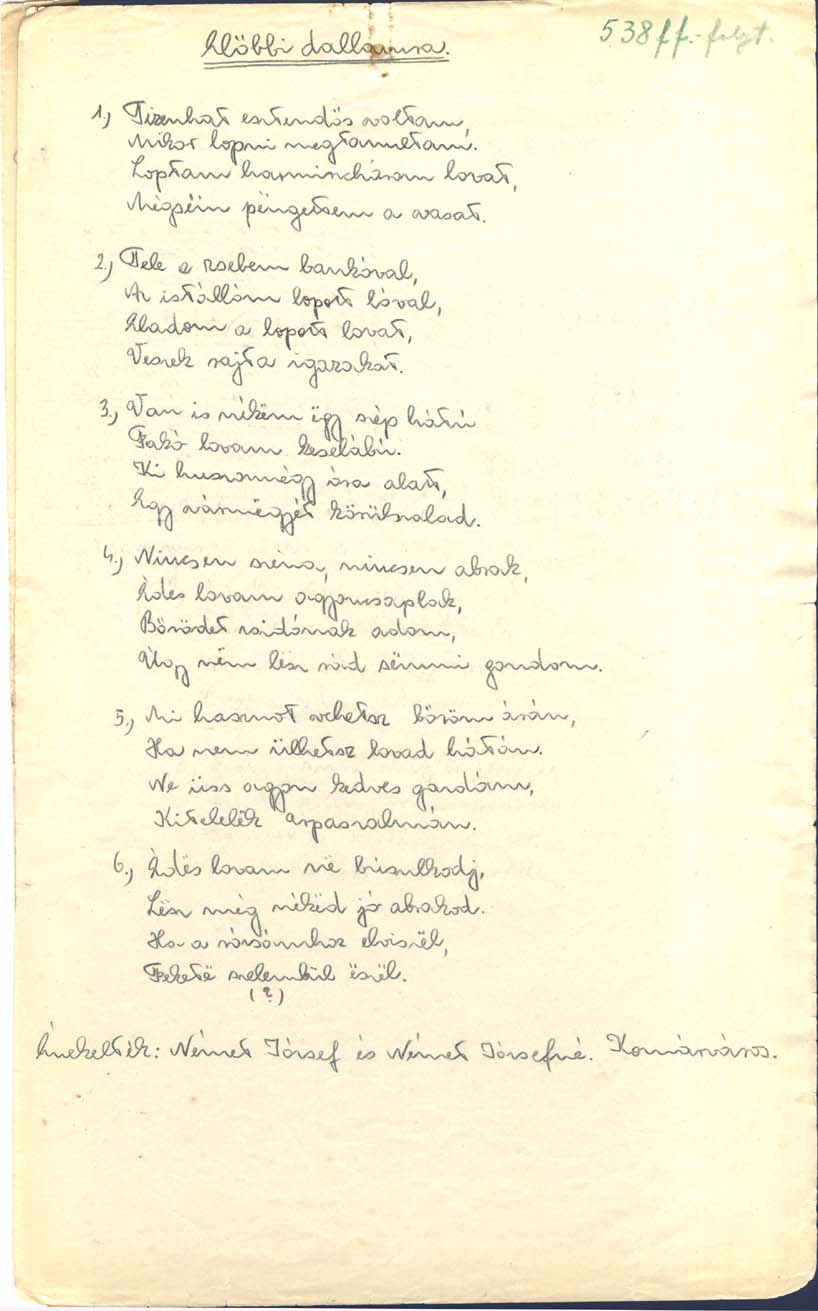 Előbbi dallamra.
538 ff.-folyt.
1., Tizenhat esztendős voltam,
Mikor lopni megtanultam.
Loptam harminchárom lovat,
Mégsëm pëngettem a vasat.
2., Tele a zsebem bankóval,
Az istállóm lopott lóval,
Eladom a lopott lovat,
Veszek rajta igazakat.
3., Van is nékëm ëgy szép hátú
Fakó lovam keselábú.
Ki huszonnégy óra alatt,
Egy vármëgyét körülszalad.
4., Nincsen széna, nincsen abrak,
Édes lovam agyoncsaplak,
Bőrödet zsidónak adom,
Úgy nëm lësz rád sëmmi gondom.
5., Mi hasznot vehetsz bőröm árán,
Ha nem ülhetsz lovad hátán.
Ne üss agyon kedves gazdám,
Kitelelëk árpaszalmán.
6., Édës lovam në búsulkodj,
Lësz még nékëd jó abrakod.
Ha a rózsámhoz elviszël,
Feketë szelembül ëszël.
(?)
Énekelték: Német József és Német Józsefné. Komárváros.